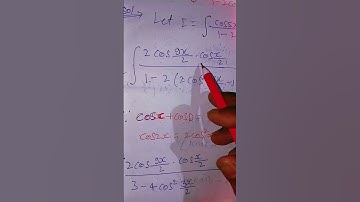 Let I = ∫ cos5x
1 - 2
∫ 2 cos 9x/2 · cos x/2
1 - 2 (2 cos² - 1
∵ cosx + cosD =
cos2x = 2 cos
2 cos 9x/2 · cos x/2
3 - 4 cos² 3x/2